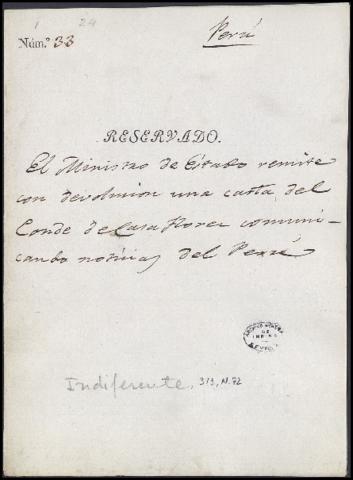 1 24
Núm.º 33
Perú
RESERVADO.
El Ministro de Estado remite
con devolucion una carta del
Conde de Casa Flores comuni-
cando noticias del Perú
ARCHIVO GENERAL
DE
INDIAS
SEVILLA
Indiferente, 313, N.72